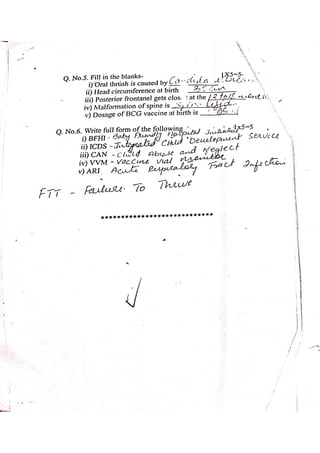 Q. No.5. Fill in the blanks- 1X5=5
i) Oral thrush is caused by Candida
ii) Head circumference at birth 35 cm
iii) Posterior frontanel gets clos at the
iv) Malformation of spine is Spina bifida
v) Dosage of BCG vaccine at birth is
Q. No.6. Write full form of the following - 1x5=5
i) BFHI - Baby Friendly Hospital
ii) ICDS - Integrated Child Development Service
iii) CAN - Child Abuse and Neglect
iv) VVM - Vaccine vial
v) ARI Acute Respiratory Tract Infection
FTT - Failure To Thrive